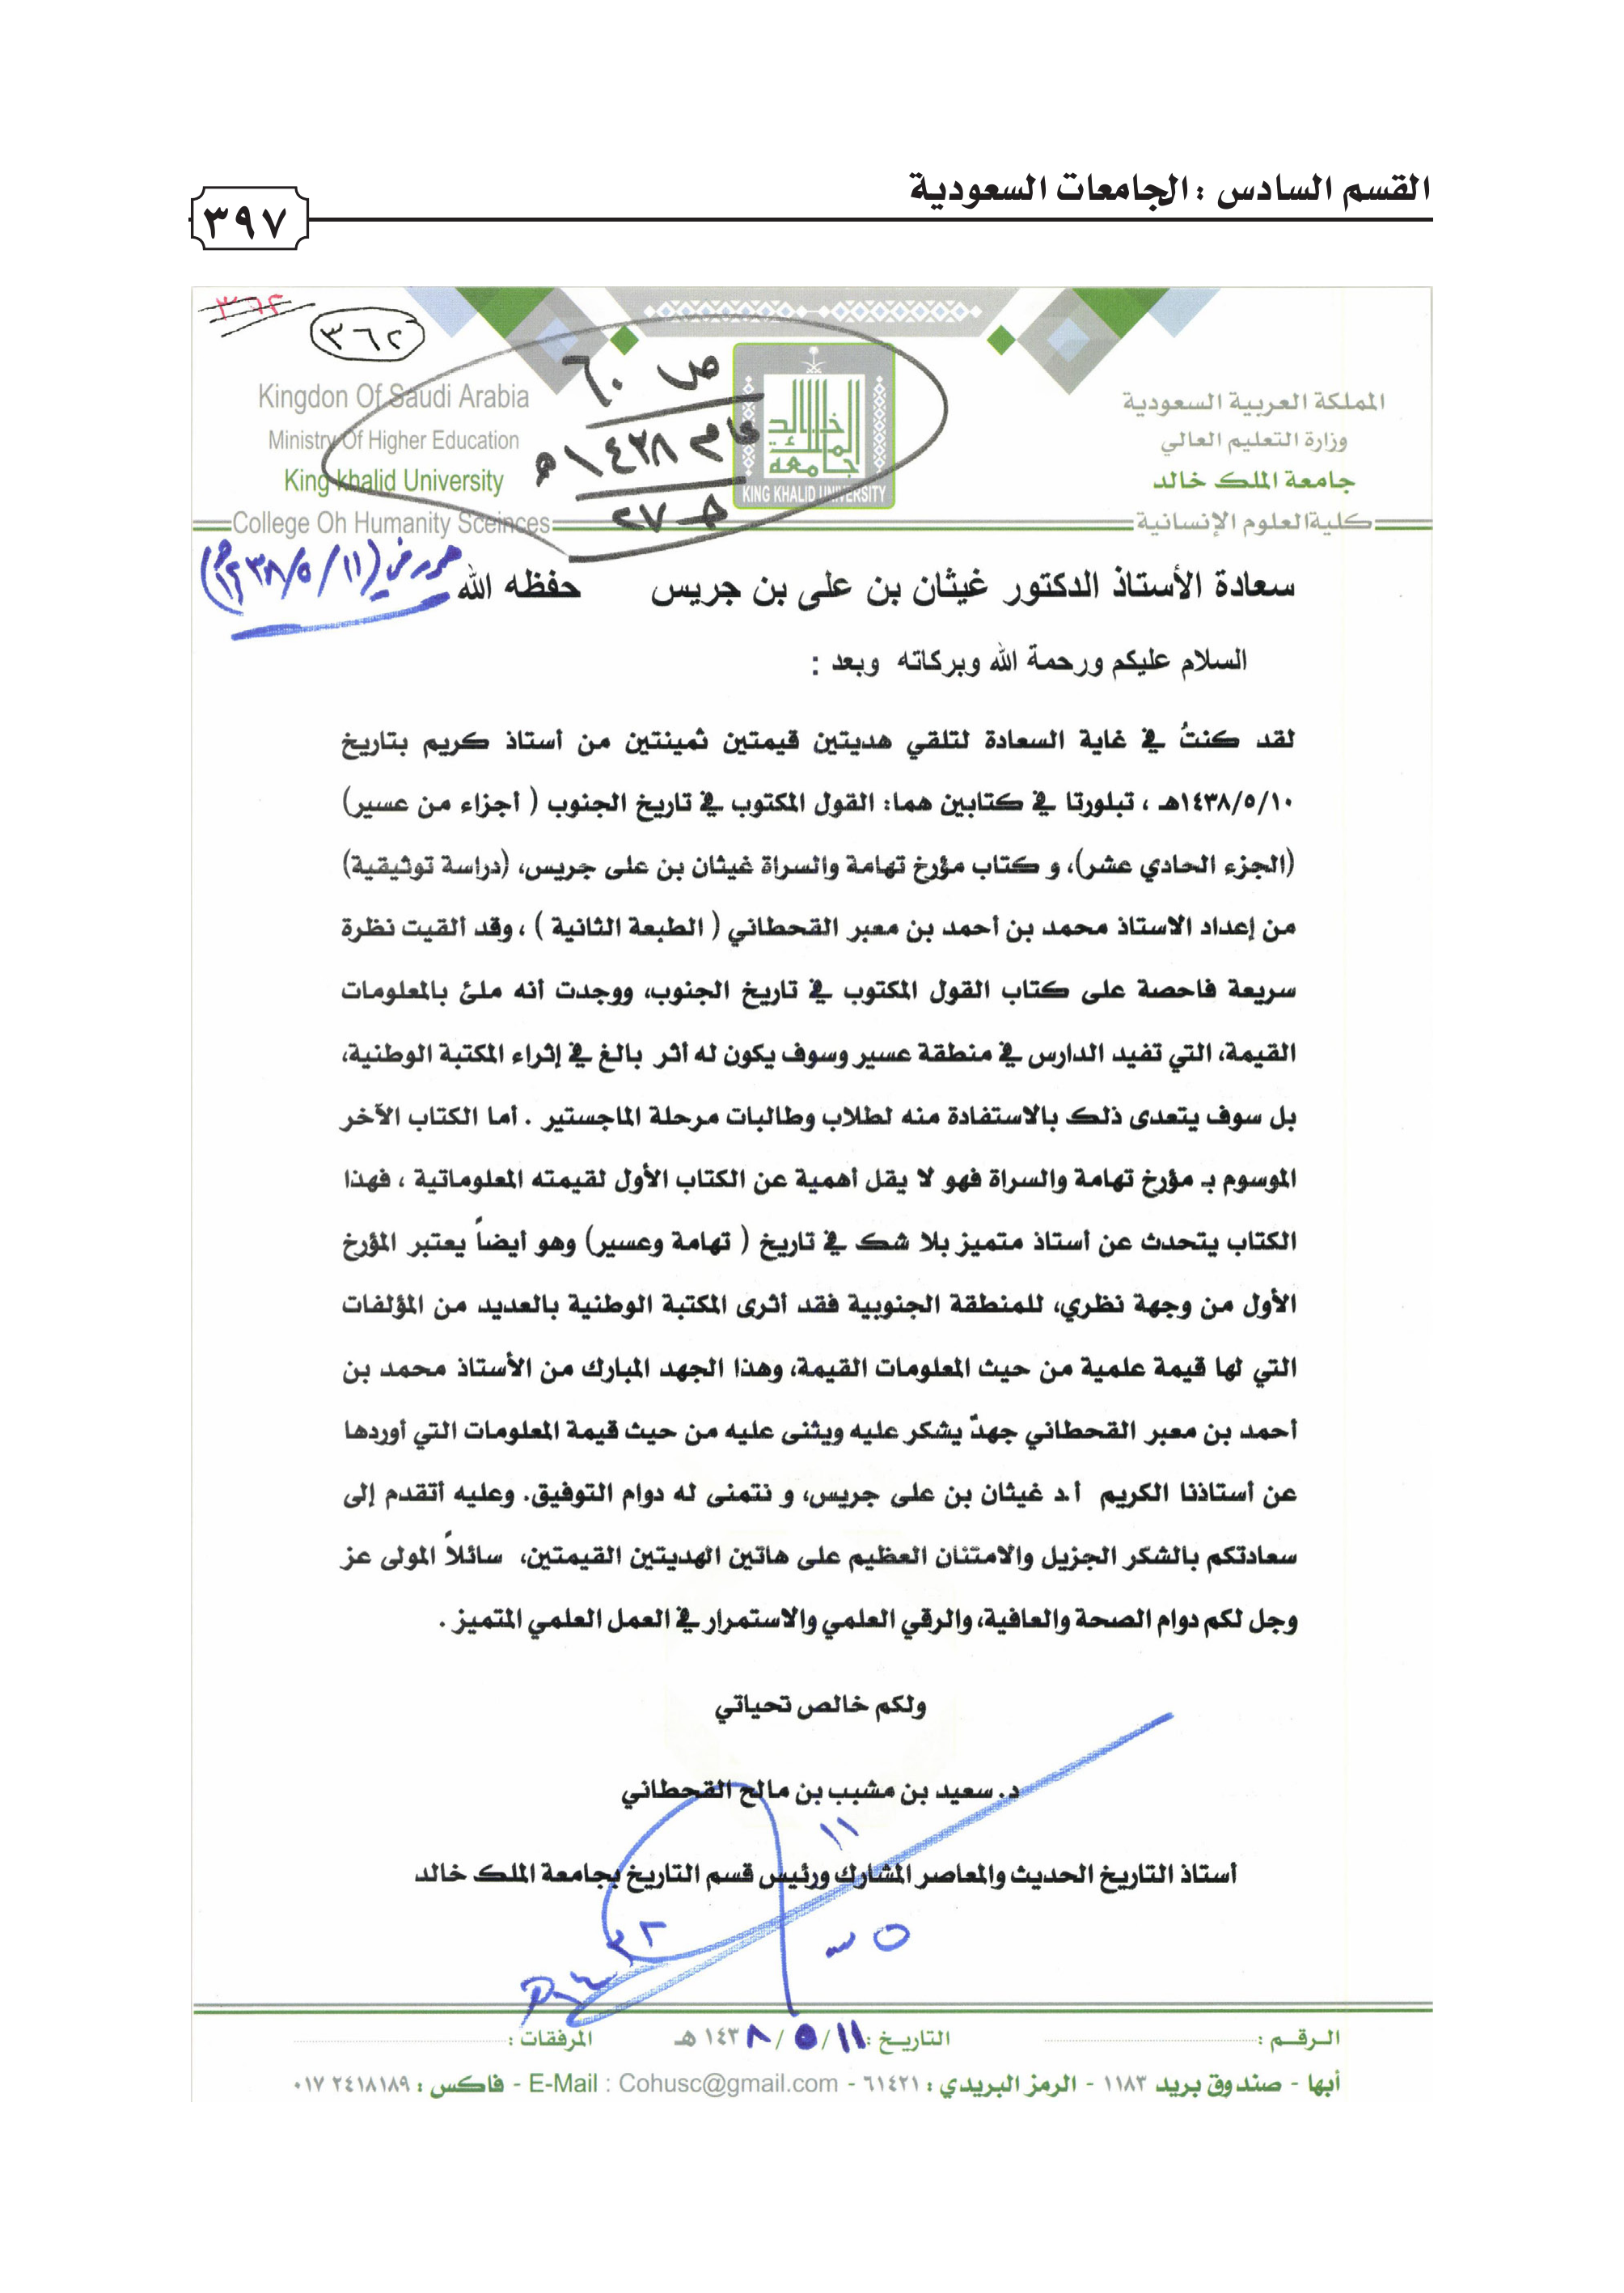 القسم السادس : الجامعات السعودية
٣٩٧
٣٦٢
٣٦٢
المملكة العربية السعودية
وزارة التعليم العالي
جامعة الملك خالد
كلية العلوم الإنسانية
Kingdon Of Saudi Arabia
Ministry Of Higher Education
King khalid University
College Oh Humanity Sceinces
KING KHALID UNIVERSITY
ص ٦٠
عام ١٤٣٨هـ
سعادة الأستاذ الدكتور غيثان بن على بن جريس حفظه الله
السلام عليكم ورحمة الله وبركاته وبعد :
لقد كنتُ في غاية السعادة لتلقي هديتين قيمتين ثمينتين من أستاذ كريم بتاريخ
١٤٣٨/٥/١٠هـ ، تبلورتا في كتابين هما: القول المكتوب في تاريخ الجنوب ( أجزاء من عسير)
(الجزء الحادي عشر)، و كتاب مؤرخ تهامة والسراة غيثان بن على جريس، (دراسة توثيقية)
من إعداد الاستاذ محمد بن أحمد بن معبر القحطاني ( الطبعة الثانية ) ، وقد ألقيت نظرة
سريعة فاحصة على كتاب القول المكتوب في تاريخ الجنوب، ووجدت أنه ملئ بالمعلومات
القيمة، التي تفيد الدارس في منطقة عسير وسوف يكون له أثر بالغ في إثراء المكتبة الوطنية،
بل سوف يتعدى ذلك بالاستفادة منه لطلاب وطالبات مرحلة الماجستير . أما الكتاب الآخر
الموسوم بـ مؤرخ تهامة والسراة فهو لا يقل أهمية عن الكتاب الأول لقيمته المعلوماتية ، فهذا
الكتاب يتحدث عن أستاذ متميز بلا شك في تاريخ ( تهامة وعسير) وهو أيضاً يعتبر المؤرخ
الأول من وجهة نظري، للمنطقة الجنوبية فقد أثرى المكتبة الوطنية بالعديد من المؤلفات
التي لها قيمة علمية من حيث المعلومات القيمة، وهذا الجهد المبارك من الأستاذ محمد بن
أحمد بن معبر القحطاني جهدٌ يشكر عليه ويثنى عليه من حيث قيمة المعلومات التي أوردها
عن أستاذنا الكريم أ.د غيثان بن على جريس، و نتمنى له دوام التوفيق. وعليه أتقدم إلى
سعادتكم بالشكر الجزيل والامتنان العظيم على هاتين الهديتين القيمتين، سائلاً المولى عز
وجل لكم دوام الصحة والعافية، والرقي العلمي والاستمرار في العمل العلمي المتميز .
ولكم خالص تحياتي
د. سعيد بن مشبب بن مالح القحطاني
أستاذ التاريخ الحديث والمعاصر المشارك ورئيس قسم التاريخ بجامعة الملك خالد
الـرقـم : التاريـخ : ١١ / ٥ / ١٤٣٨ هـ المرفقات :
أبها - صندوق بريد ١١٨٣ - الرمز البريدي : ٦١٤٢١ - E-Mail : Cohusc@gmail.com - فاكس : ٠١٧ ٢٤١٨١٨٩